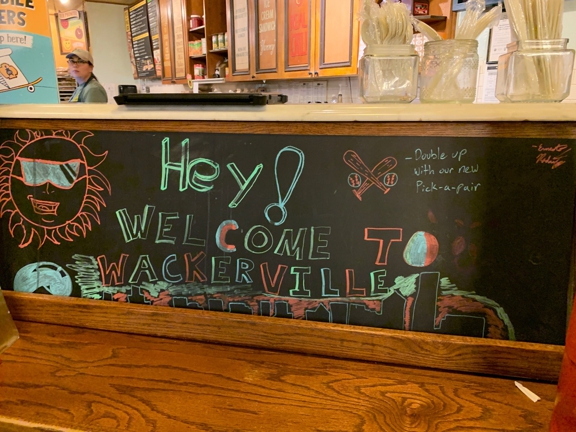 Hey!
WELCOME TO
WACKERVILLE
-Double up
with our new
Pick-a-pair
here!